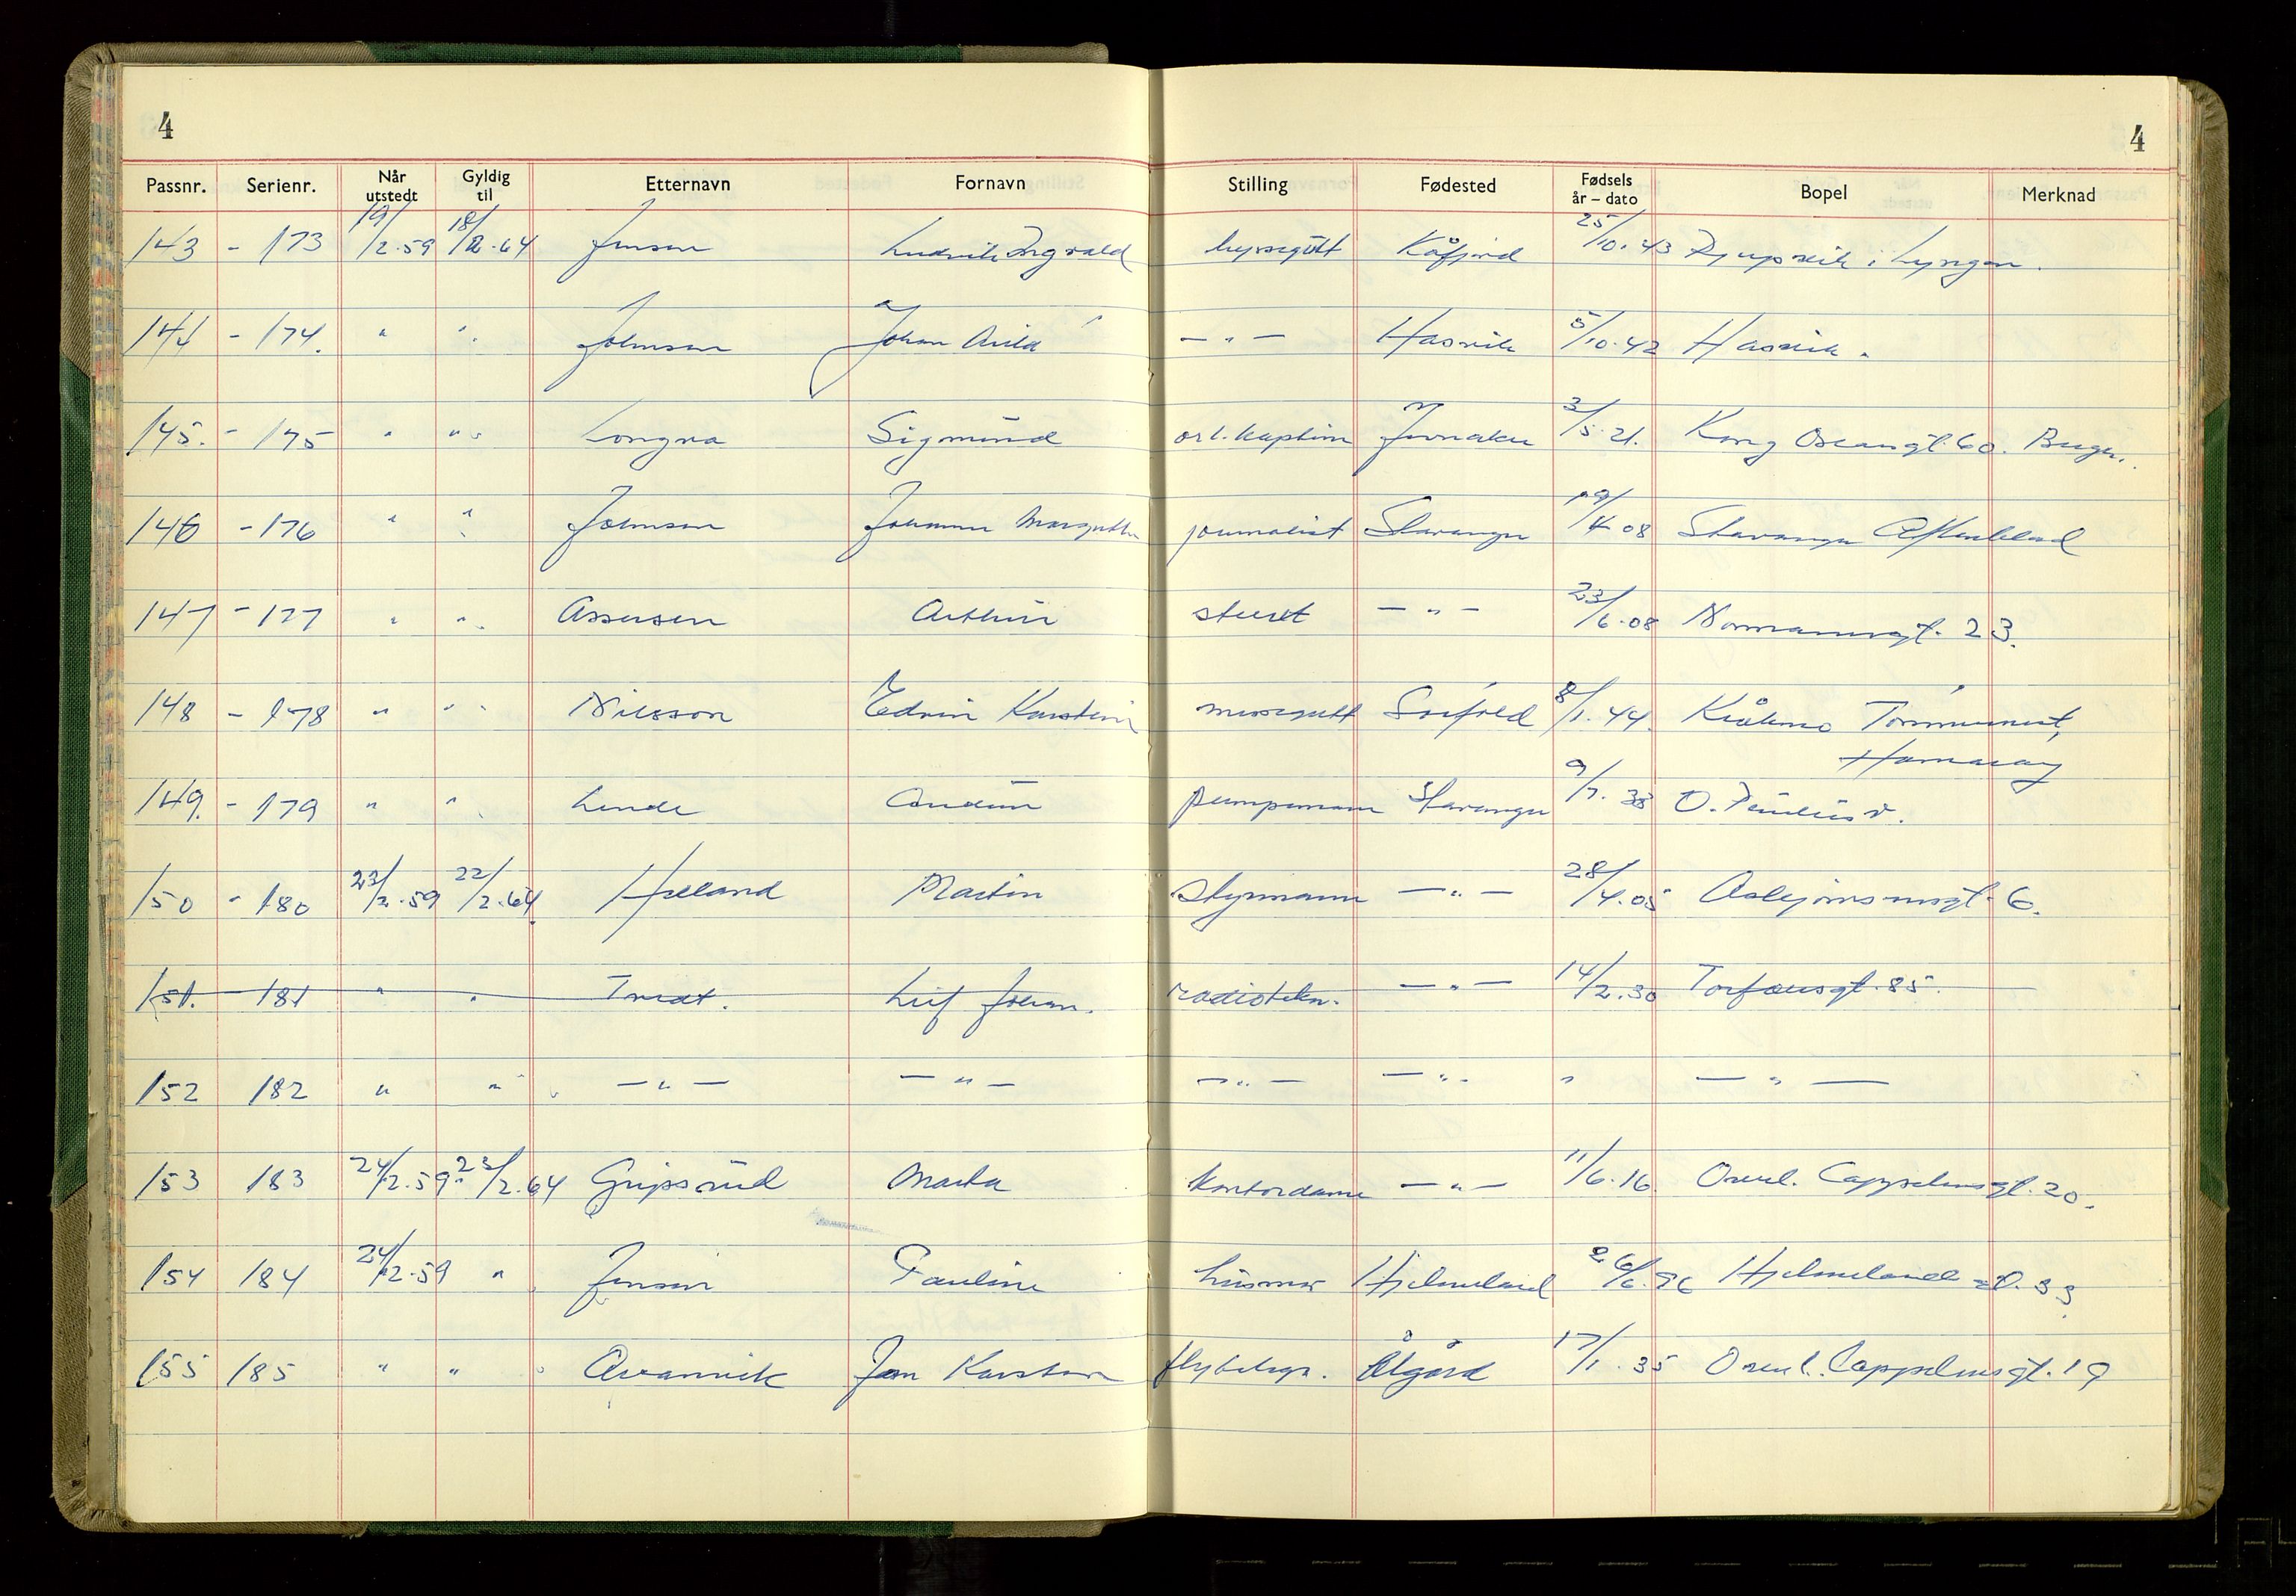 4
4
Passnr. Serienr. Når utstedt Gyldig til Etternavn Fornavn Stilling Fødested Fødsels år – dato Bopel Merknad
143 - 173 19/2.59 18/2.64 Jensen Ludvik Ingvald byssegutt Kåfjord 25/10.43 Djupvik i Lyngen.
144 - 174. " " Johnsen Johan Arild — " — Hasvik 5/10.42 Hasvik.
145. - 175 " " Longva Sigmund Jevnaker 3/5.21. Kong Oscarsgt. 60. Bergen.
146 - 176 " " Johnsen Johanne Margrethe journalist Stavanger 19/4.08 Stavanger Aftenblad
147 - 177 " " Assersen Arthur stuert — " — 23/6.08 Normannsgt. 23.
148 - 178 " " Nilsson Edvin Karstein messegutt Sørfold 8/1.44. Kråkmo Tømmernest,
Hamarøy
149. - 179 " " Lende Audun pumpemann Stavanger 9/7.38 O. Paulus v.
150 - 180 23/2.59 22/2.64 Helland Martin Styrmann — " — 28/4.05 Asbjørnsensgt. 6.
151. 181 " " Tvedt. Leif Johan. radiotekn. — " — 14/2.30 Torfæusgt. 85.
152 182 " " — " — — " — — " — — " — " — " —
153 183 24/2.59 23/2.64 Gripsrud Marta kontordame — " — 11/6.16 Overl. Cappelensgt. 20.
154 184 24/2.59 " Jensen Pauline husmor Hjelmeland 26/6.96 Hjelmelandsgt. 33.
155 185 " " Aranvik Jan Karsten flybetj. Ålgård 17/1.35 Overl. Cappelensgt. 19